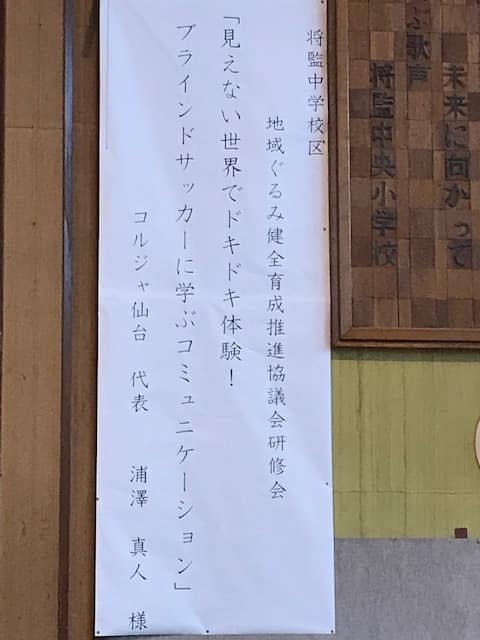 将監中学校区
地域ぐるみ健全育成推進協議会研修会
「見えない世界でドキドキ体験！
ブラインドサッカーに学ぶコミュニケーション」
コルジャ仙台　代表　浦澤　真人　様
未来に向かって
ぶ歌声
将監中央小学校